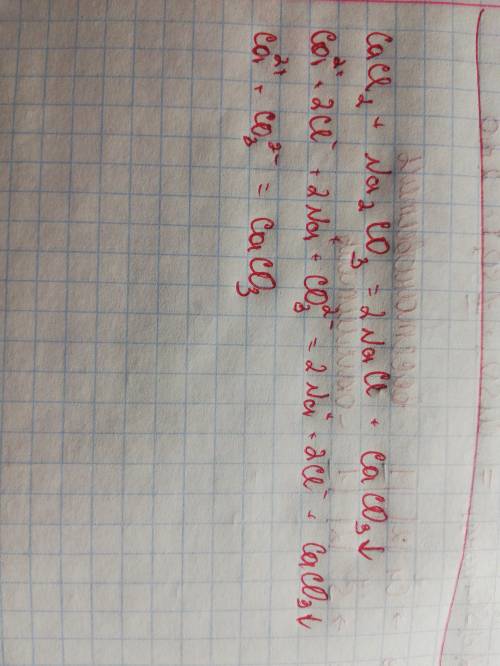 CaCl₂ + Na₂CO₃ = 2NaCl + CaCO₃↓
Ca²⁺ + 2Cl⁻ + 2Na⁺ + CO₃²⁻ = 2Na⁺ + 2Cl⁻ + CaCO₃↓
Ca²⁺ + CO₃²⁻ = CaCO₃